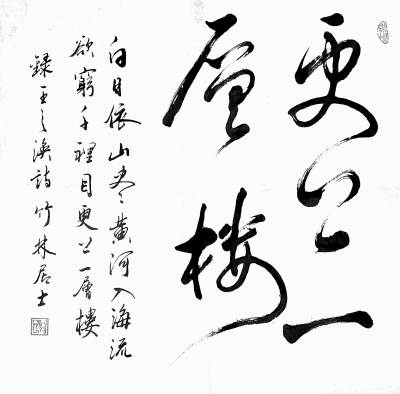 更上一
層樓
白日依山尽黄河入海流
欲窮千裡目更上一層樓
録王之渙詩竹林居士